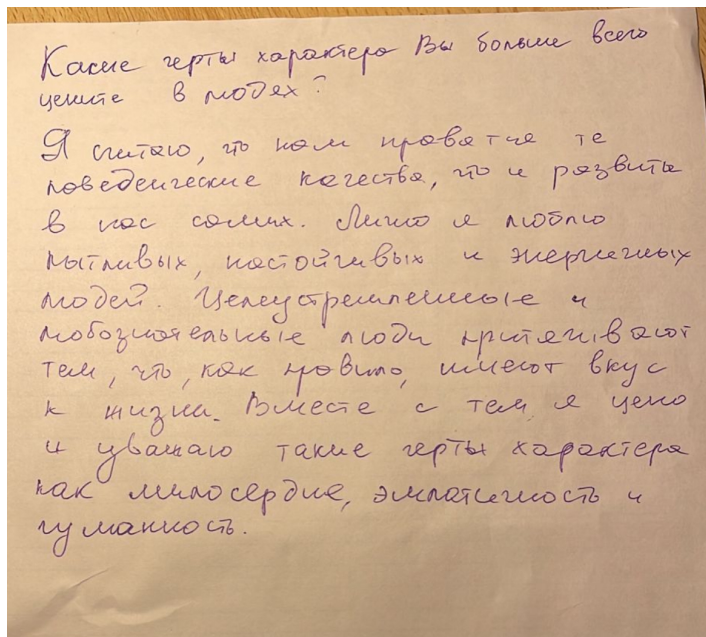 Какие черты характера Вы больше всего
цените в людях?
Я считаю, что нам нравятся те
поведенческие качества, что и развиты
в нас самих. Лично я люблю
пытливых, настойчивых и энергичных
людей. Целеустремленные и
любознательные люди притягивают
тем, что, как правило, имеют вкус
к жизни. Вместе с тем, я ценю
и уважаю такие черты характера
как милосердие, эмпатичность и
гуманность.